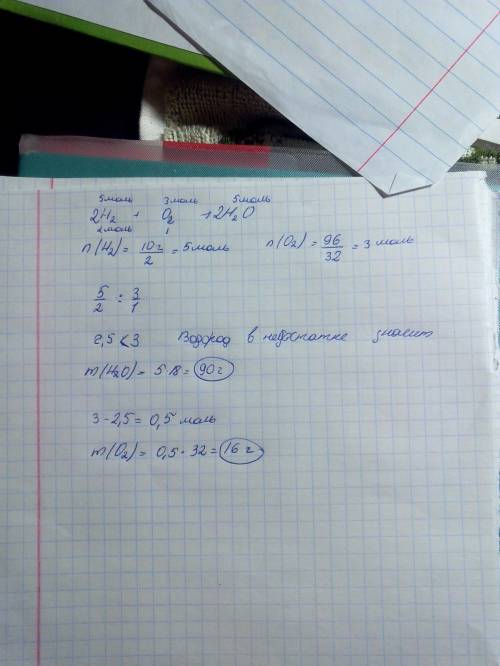 5моль 3моль 5моль
2H₂ + O₂ → 2H₂O
2моль 1
n(H₂) = 10г/2 = 5моль n(O₂) = 96/32 = 3 моль
5/2 : 3/1
2,5 < 3 Водород в недостатке значит
m(H₂O) = 5·18 = 90г
3 - 2,5 = 0,5 моль
m(O₂) = 0,5 · 32 = 16 г